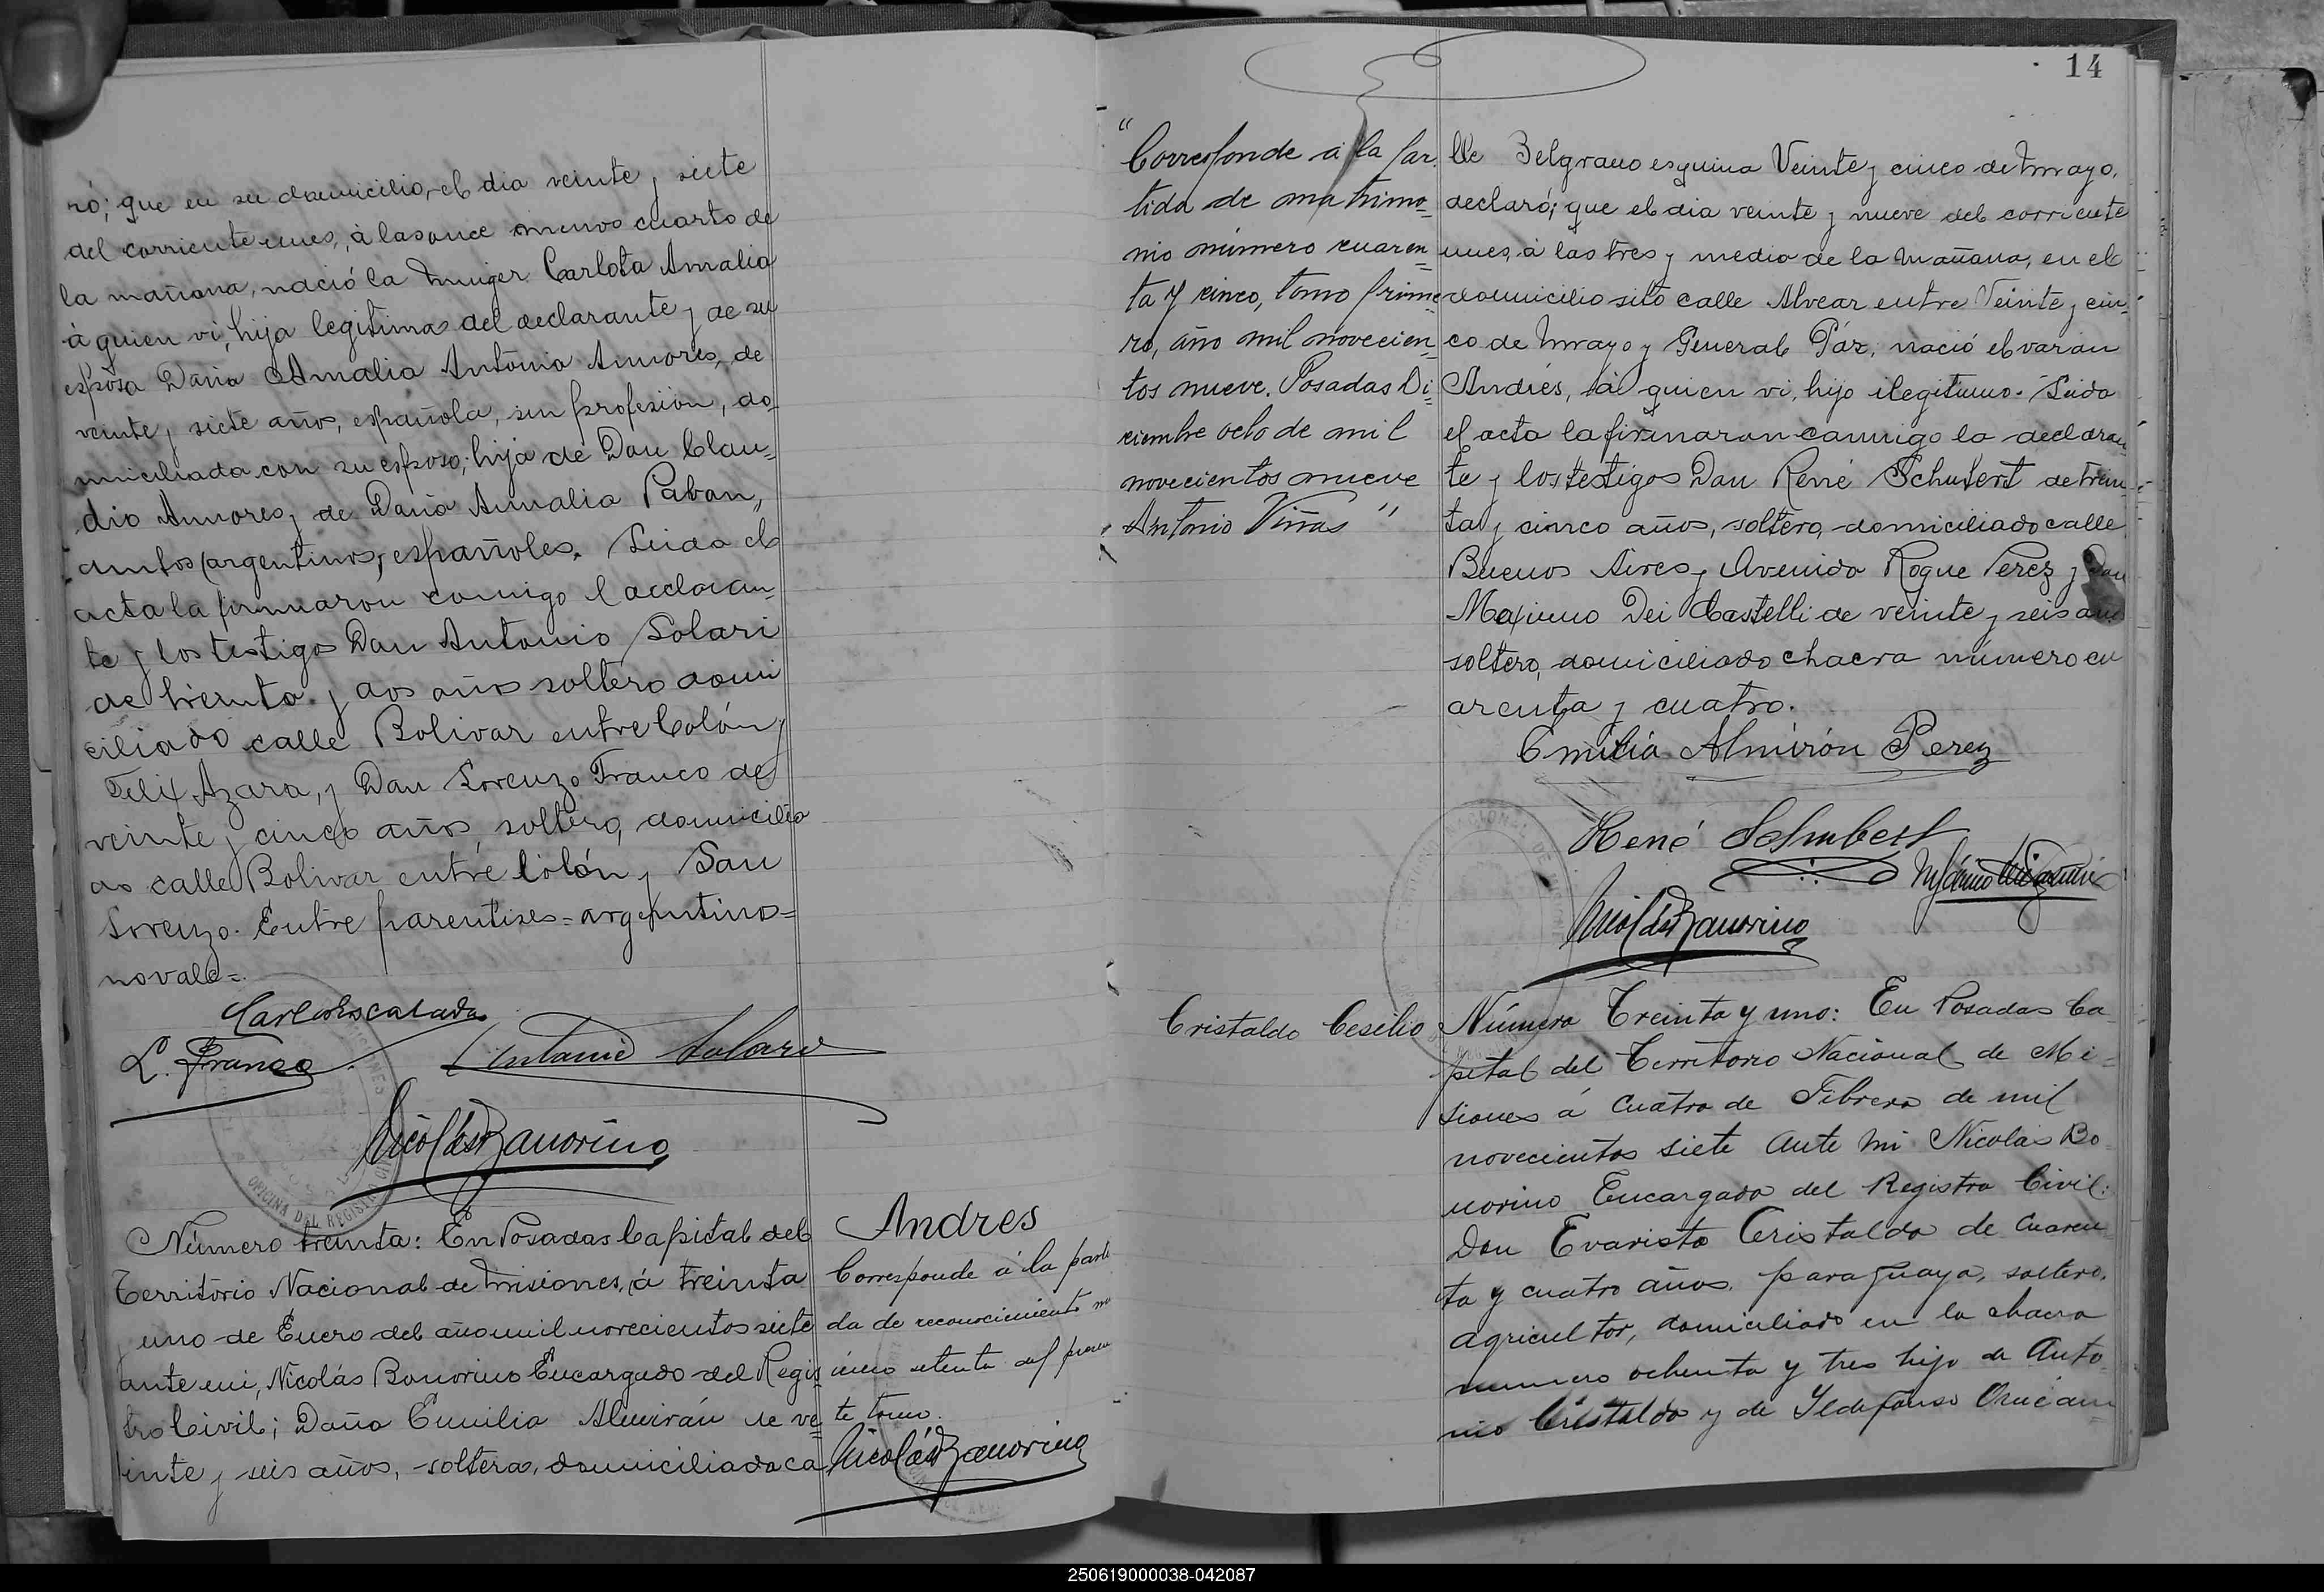 ró; que en su domicilio, el dia veinte y siete
del corriente mes, à las once menos cuarto de
la mañana, nació la muger Carlota Amalia
à quien vi, hija legitima del declarante y de su
esposa Doña Amalia Antonia Amores, de
veinte y siete años, española, sin profesión, do-
miciliada con su esposo; hija de Don Clau=
dio Amores y de Doña Amalia Pabon,
ambos (argentinos) españoles. Leida el
acta la firmaron conmigo el declaran=
te y los testigos Don Antonio Solari
de treinta y dos años soltero domi
ciliado calle Bolivar entre Colón y
Felix Azara, y Don Lorenzo Franco de
veinte y cinco años, soltero, domicilia
do calle Bolivar entre Colón y San
Lorenzo. Entre parentises = argentinos =
no vale =.
Carlos Escalada
L. Franco Antonio Solari
Nicolás Bonorino
OFICINA DEL REGISTRO CIVIL
Número treinta: En Posadas Capital del
Territorio Nacional de Misiones, á treinta
y uno de Enero del año mil novecientos siete
ante mi, Nicolás Bonorino Encargado del Regis
tro Civil; Doña Emilia Almirón de ve=
inte y seis años, soltera, domiciliada ca
Andres
Corresponde á la parti
da de reconocimiento nú
mero setenta del presen
te tomo.
Nicolás Bonorino
14
"Corresponde á la par
tida de matrimo=
nio número cuaren=
ta y cinco, tomo prime
ro, año mil novecien=
tos nueve. Posadas Di=
ciembre ocho de mil
novecientos nueve
Antonio Viñas"
lle Belgrano esquina Veinte y cinco de Mayo,
declaró; que el dia veinte y nueve del corriente
mes, à las tres y media de la Mañana, en el
domicilio sito calle Alvear entre Veinte y cin=
co de Mayo y General Páz, nació el varon
Andrés, à quien vi, hijo ilegitimo. Leida
el acta la firmaron conmigo la declaran
te y los testigos Don René Schubert de trein=
ta y cinco años, soltero, domiciliado calle
Buenos Aires y Avenida Roque Perez y Don
Maximo Dei Castelli de veinte y seis años
soltero, domiciliado chacra numero cu
arenta y cuatro.
Emilia Almirón Perez
René Schubert
Nicolás Bonorino
Cristaldo Cesilio
Número Treinta y uno: En Posadas Ca
pital del Territorio Nacional de Mi=
siones á cuatro de Febrero de mil
novecientos siete ante mi Nicolás Bo
norino Encargado del Registro Civil:
Don Evaristo Cristaldo de cuaren
ta y cuatro años, paraguayo, soltero,
agricultor, domiciliado en la chacra
numero ochenta y tres hijo de Anto
nio Cristaldo y de Ildefonso
250619000038-042087